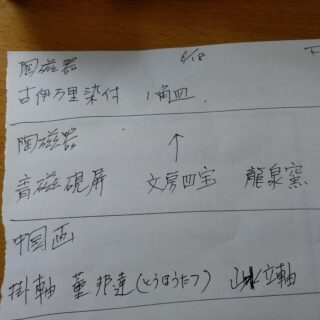 陶磁器 6/18
古伊万里染付 八角皿
陶磁器 ↑
青磁硯屏 文房四宝 龍泉窯
中国画
掛軸 董邦達(とうほうたつ) 山水立軸